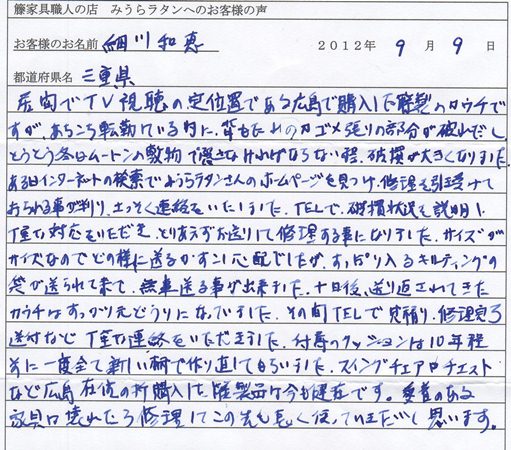 籐家具職人の店　みうらラタンへのお客様の声
お客様のお名前 細川和恵　2012年 9月 9日
都道府県名 三重県
居間でTV視聴の定位置である広島で購入した籐製のカウチで
すが、あちこち転勤している内に、背もたれのカゴメ張りの部分が破れだし
とうとう冬はムートンの敷物で隠さなければならない程、破損が大きくなりました
ある日インターネットの検索でみうらラタンさんのホームページを見つけ、修理を引受けて
おられる事が判り、さっそく連絡をいたしました。TELで、破損状況を説明し
丁寧な対応をいただき、とりあえずお送りして修理する事になりました。サイズが
サイズなのでどの様に送るか少し心配でしたが、すっぽり入るキルティングの
袋が送られて来て、無事送る事が出来ました。十日後、送り返されてきた
カウチはすっかり元どうりになっていました。その間TELで見積り、修理完了
送付など丁寧な連絡をいただきました。付属のクッションは10年程
前に一度全て新しい柄で作り直してもらいました。スイングチェアやチェスト
など広島在住の折購入した籐製品は今も健在です。愛着のある
家具は壊れたら修理してこの先も長く使っていきたいと思います。